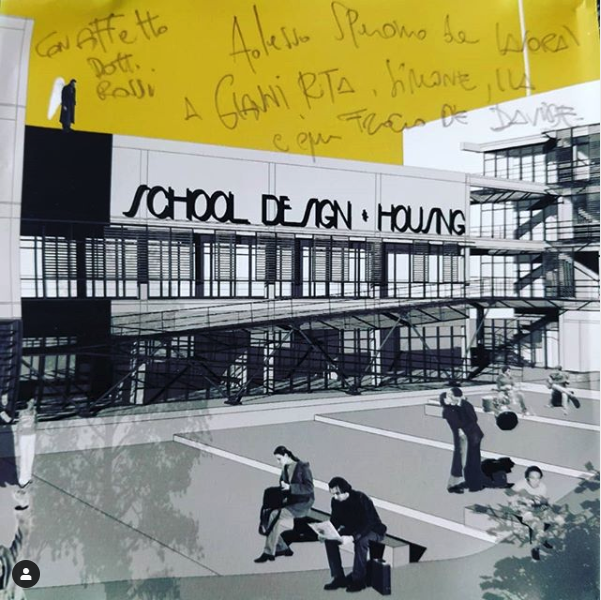 Con Affetto
Dott.
Rossi
Adesso Speriamo de LAVORA'
A GIANNI RITA, Simone,
e qui DE DAVIDE
SCHOOL DESIGN + HOUSING